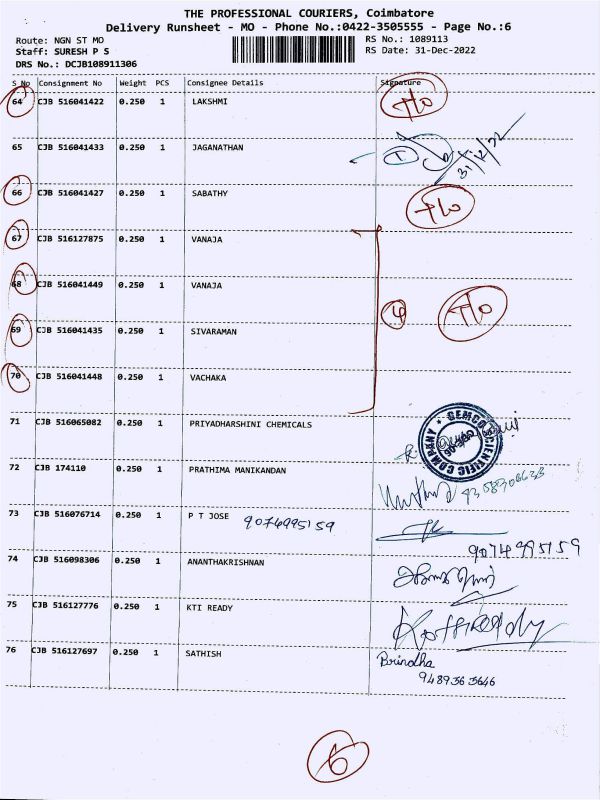 THE PROFESSIONAL COURIERS, Coimbatore
Delivery Runsheet - MO - Phone No.:0422-3505555 - Page No.:6
Route: NGN ST MO RS No.: 1089113
Staff: SURESH P S RS Date: 31-Dec-2022
DRS No.: DCJB108911306
S No Consignment No Weight PCS Consignee Details Signature
64 CJB 516041422 0.250 1 LAKSHMI
65 CJB 516041433 0.250 1 JAGANATHAN 31/12/22
66 CJB 516041427 0.250 1 SABATHY
67 CJB 516127875 0.250 1 VANAJA
68 CJB 516041449 0.250 1 VANAJA
69 CJB 516041435 0.250 1 SIVARAMAN
70 CJB 516041448 0.250 1 VACHAKA
71 CJB 516065082 0.250 1 PRIYADHARSHINI CHEMICALS
GEMCO SCIENTIFIC COMPANY
72 CJB 174110 0.250 1 PRATHIMA MANIKANDAN
73 CJB 516076714 0.250 1 P T JOSE 9074995159
9074995159
74 CJB 516098306 0.250 1 ANANTHAKRISHNAN
75 CJB 516127776 0.250 1 KTI READY
76 CJB 516127697 0.250 1 SATHISH Brindha
9489565646
6